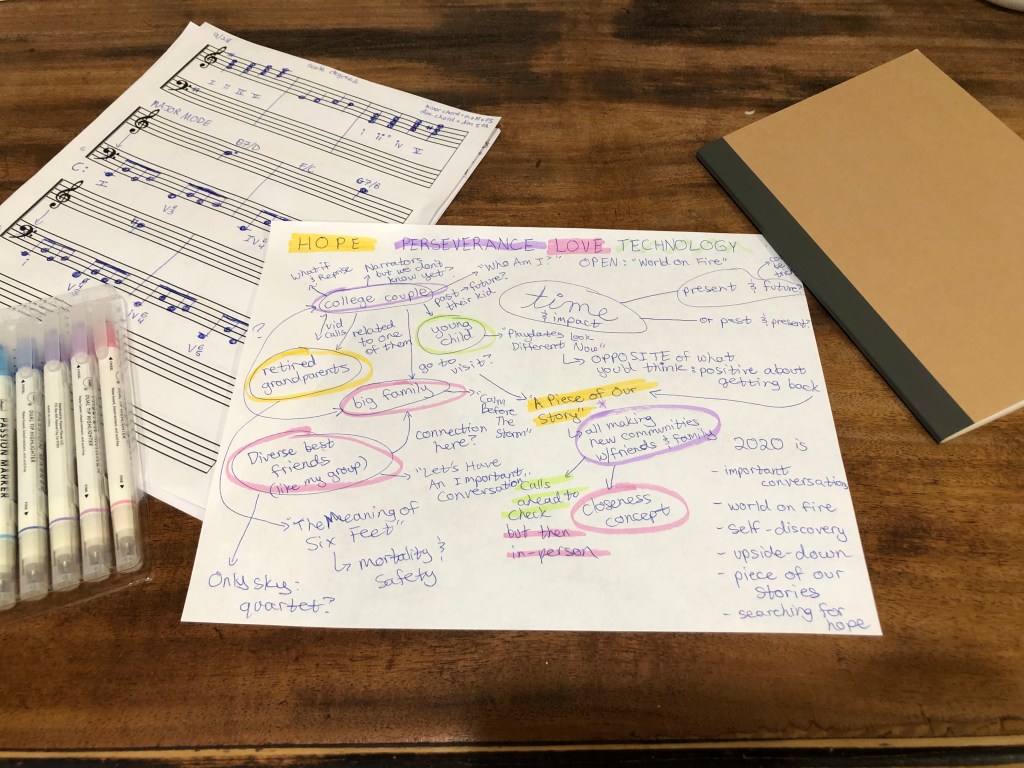 9/28
scale degrees
I ii IV V
MAJOR MODE
G7/D
F/C
G7/B
C:
I
HOPE PERSEVERANCE LOVE TECHNOLOGY
OPEN: "World on Fire"
What if
& Reprise
Narrators
but we don't
know yet
"Who Am I?"
college couple
past → future?
their kid
time
& impact
present & future?
or past & present?
vid
calls
related
to one
of them
young
child
"Playdates Look
Different Now"
OPPOSITE of what
you'd think: positive about
getting back
retired
grandparents
go to
visit?
big family
"Calm
Before
The
Storm"
"A Piece of Our
Story"
all making
new communities
w/friends & family
connection
here?
Diverse best
friends
(like my group)
"Let's Have
An Important
Conversation"
Calls
ahead to
check
but then
in-person
closeness
concept
"The Meaning of
Six Feet"
mortality &
safety
Only sky:
quartet?
2020 is
- important
conversations
- world on fire
- self-discovery
- upside-down
- piece of our
stories
- searching for
hope
?
PASSION MARKER
DUAL TIP HIGHLIGHTER
DUAL TIP HIGHLIGHTER
DUAL TIP HIGHLIGHTER
DUAL TIP HIGHLIGHTER